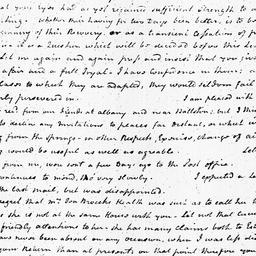 at your eyes had as yet regained sufficient strength to
whether their having for two Days been better, is to be
of their Recovery. or as a transient Cessation of
is a Question which will be decided before this
Let me again and again press and insist that you give
affair and a full Tryal. I have Confidence in them; a
Cases to which they are adapted, they would seldom fail
persevered in. I am pleased with
from our friends at albany and near Ballston; but I think
to decline any Invitations to places far distant, or which
from the springs. in other Respects, Exercise, change of air
could be useful as well as agreeable.
from me, was sent a few Days ago to the Post office.
continues to mend, tho' very slowly. I expected a
the last mail, but was disappointed.
regret that Mrs. Health was such as to call her
she is not at the same House with you. Let not that
friendly attentions to her. she has many claims both to
have never been absent on any occasion, when I was less
your Return than at present; on that point therefore you